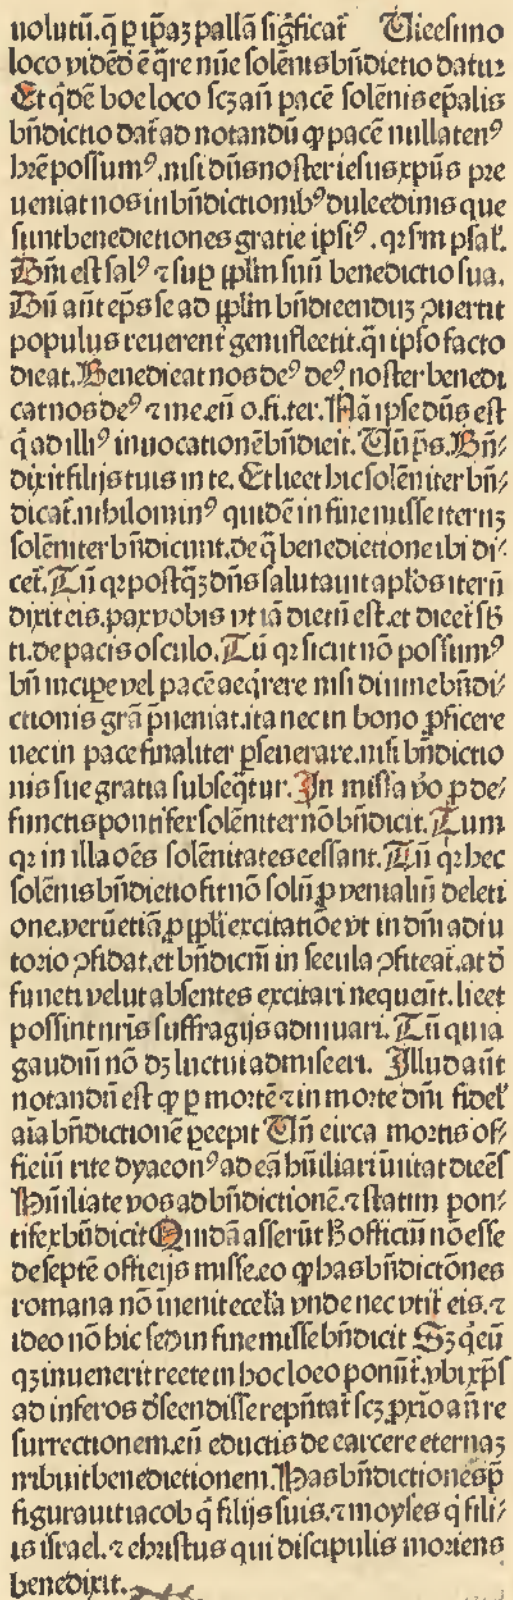 uolutū.q̄ ꝑ ip̄aꝫ pallā sig̅ficat̄ Uicesimo
loco vidēd̄ ē q̄re nūc solēnis bn̄dictio datur
Et q̇dē hoc loco scꝫ an̄ pacē solēnis ep̄alis
bn̄dictio dat̄ ad notandū ꝙ pacē nullatenꝰ
hr̄e possumꝰ.nisi dn̄s noster iesus xp̄us pre
ueniat nos in bn̄dictionibꝰ dulcedinis que
sunt benedictiones gratie ipsiꝰ.qꝛ s̄m psal̄.
Dn̄i est salꝰ ⁊ suꝑ ppl̄m suū benedictio sua.
Dū aūt ep̄s se ad ppl̄m bn̄dicenduꝫ ꝯuertit
populus reuerent̄ genuflectit.q̄i ipso facto
dicat.Benedicat nos deꝰ deꝰ noster benedi
cat nos deꝰ ⁊ me.eū o.fi.ter.Nā ipse dn̄s est
q̄ ad illiꝰ inuocationē bn̄dicit.Un̄ p̄s.Bn̄⸗
dixit filijs tuis in te. Et licet hic solēniter bn̄⸗
dicat̄.nihilominꝰ quidē in fine misse iteruꝫ
solēniter bn̄dicunt.de q̄ benedictione ibi di⸗
cet̄.Tū qꝛ postq̄ꝫ dn̄s salutauit apl̄os iterū
dixit eis.pax vobis vt iā dictū est.et dicet̄ sb̄
ti.de pacis osculo.Tū qꝛ sicut nō possumꝰ
bn̄ incipe vel pacē acq̇rere nisi diuine bn̄di⸗
ctionis gr̄a p̄ueniat.ita nec in bono ꝓficere
nec in pace finaliter ꝑseuerare.nisi bn̄dictio
nis sue gratia subseq̄tur. In missa v̄o ꝓ de⸗
functis pontifex solēniter nō bn̄dicit.Tum
qꝛ in illa oēs solēnitates cessant.Tū qꝛ hec
solēnis bn̄dictio fit nō solū ꝓ venialiū deleti
one.verū etiā ꝓ ppl̄i excitatiōe vt in dn̄i adiu
torio ꝯfidat.et bn̄dicni̅ in secula ꝯfiteat̄.at d̄
functi velut absentes excitari nequeūt.licet
possint nr̄is suffragijs adiuuari.Tū quia
gaudiū nō dꝫ luctui admisceri. Illud aūt
notandū est ꝙ ꝑ mortē ⁊ in morte dn̄i fidel̄
aīa bn̄dictionē ꝑcepit Un̄ circa mortis of⸗
ficiū rite dyaconꝰ ad eā hūiliari īuitat dicēs
Hūiliate vos ad bn̄dictionē.⁊ statim pon⸗
tifex bn̄dicit Quidā asserūt h̄ officiū nō esse
de septē officijs misse.eo ꝙ has bn̄dictōnes
romana nō īuenit eccl̄a vnde nec vtit̄ eis.⁊
ideo nō hic sed in fine misse bn̄dicit Sꝫ q̇cū
qꝫ inuenerit recte in hoc loco ponūt̄.vbi xp̄s
ad inferos d̄scendisse rep̄ntat̄ scꝫ ꝓxīo an̄ re
surrectionem.cū eductis de carcere eternaꝫ
tribuit benedictionem.Has bn̄dictiones p̄
figurauit iacob q̄ filijs suis.⁊ moyses q̄ fili⸗
is israel.⁊ christus qui discipulis moriens
benedixit.